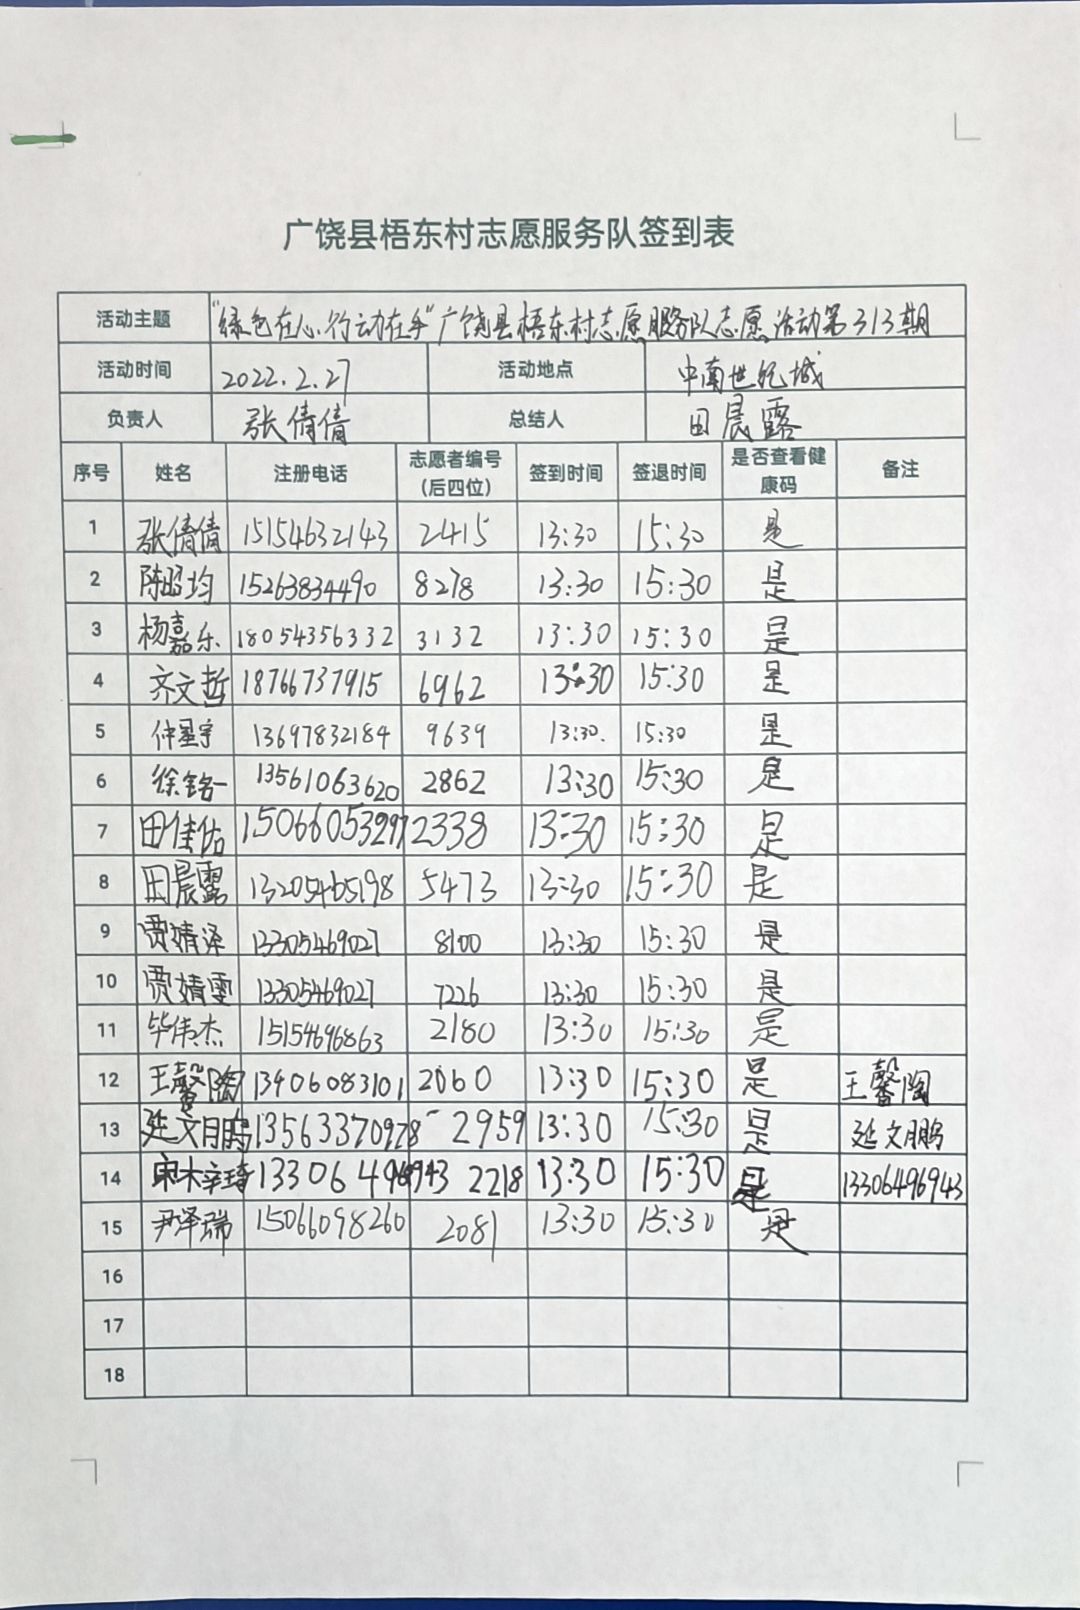 广饶县梧东村志愿服务队签到表
活动主题 "绿色在心·行动在手"广饶县梧东村志愿服务队志愿活动第313期
活动时间 2022.2.27 活动地点 中南世纪城
负责人 张倩倩 总结人 田晨露
序号 姓名 注册电话 志愿者编号(后四位) 签到时间 签退时间 是否查看健康码 备注
1 张倩倩 15154632143 2415 13:30 15:30 是
2 陈昭均 15263834490 8278 13:30 15:30 是
3 杨嘉乐 18054356332 3132 13:30 15:30 是
4 齐文哲 18766737915 6962 13:30 15:30 是
5 仲星宇 13697832184 9639 13:30. 15:30 是
6 徐铭一 13561063620 2862 13:30 15:30 是
7 田佳佑 15066053297 2338 13:30 15:30 是
8 田晨露 13205465198 5473 13:30 15:30 是
9 贾婧泽 13305469027 8100 13:30 15:30 是
10 贾婧雯 13305469027 7226 13:30 15:30 是
11 毕伟杰 15154696863 2180 13:30 15:30 是
12 王馨陶 13406083101 2060 13:30 15:30 是 王馨陶
13 延文鹏 13563370978 2959 13:30 15:30 是 延文鹏
14 宋梓琦 13306496943 2218 13:30 15:30 是 13306496943
15 尹泽瑞 15066098260 2081 13:30 15:30 是
16
17
18